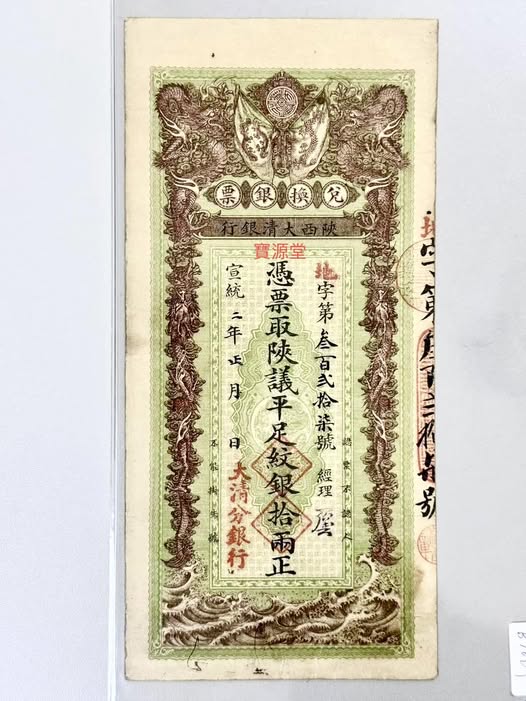 兌換銀票
陝西大清銀行
寶源堂
地字第叁百弍拾柒號 經理
憑票取陝議平足紋銀拾兩正
宣統二年正月 日
大清分銀行
認票不認人
不能掛失票